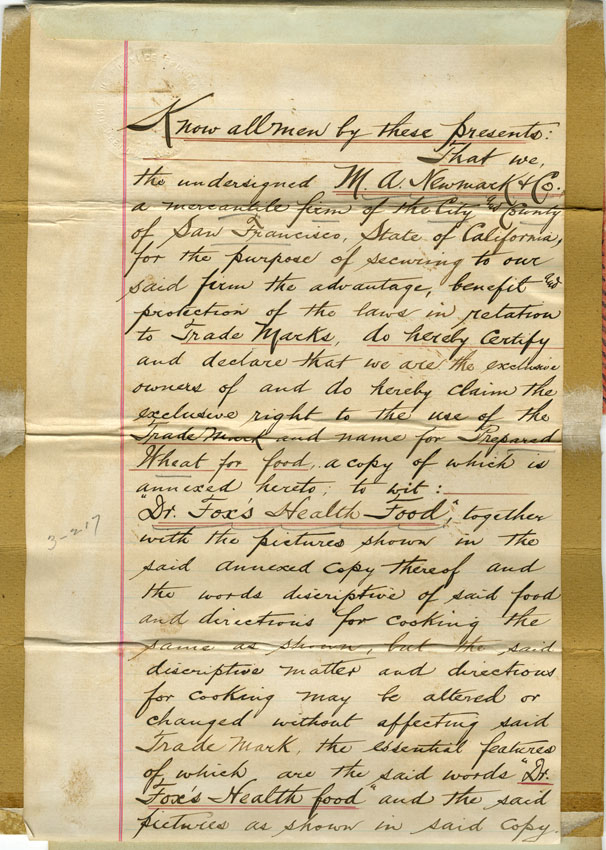 Know all men by these presents:
That we,
the undersigned M. A. Newmark & Co.,
a mercantile firm of the City and County
of San Francisco, State of California,
for the purpose of securing to our
said firm the advantage, benefit and
protection of the laws in relation
to Trade Marks, do hereby Certify
and declare that we are the exclusive
owners of and do hereby claim the
exclusive right to the use of the
Trade Mark and name for Prepared
Wheat for food, a copy of which is
annexed hereto; to wit:
"Dr. Fox's Health Food", together
with the pictures shown in the
said annexed copy thereof and
the words discriptive of said food
and directions for cooking the
same as shown, but the said
discriptive matter and directions
for cooking may be altered or
changed without affecting said
Trade Mark, the essential features
of which are the said words "Dr.
Fox's Health food" and the said
pictures as shown in said copy.
3-217